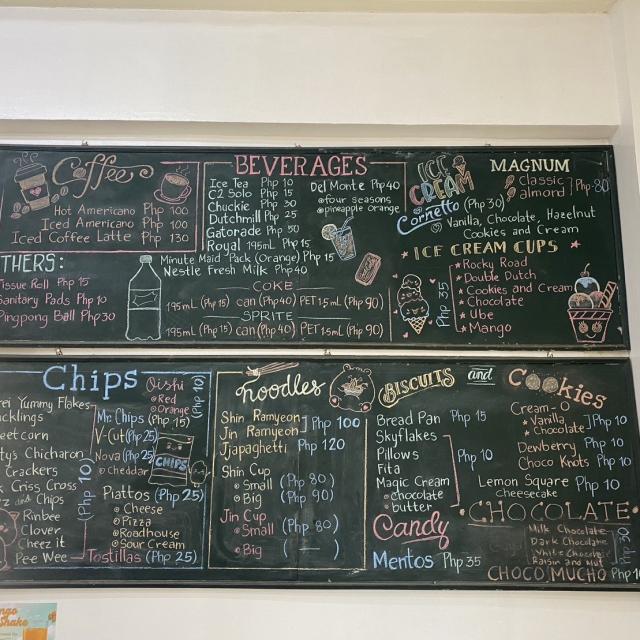 Coffee
Hot Americano Php 100
Iced Americano Php 100
Iced Coffee Latte Php 130
THERS:
Tissue Roll Php 15
Sanitary Pads Php 10
Pingpong Ball Php 30
BEVERAGES
Ice Tea Php 10
C2 Solo Php 15
Chuckie Php 30
Dutchmill Php 25
Gatorade Php 50
Royal 195mL Php 15
Minute Maid Pack (Orange) Php 15
Nestle Fresh Milk Php 40
Del Monte Php 40
four seasons
pineapple orange
COKE
195mL (Php 15) can (Php 40) PET 1.5mL (Php 90)
SPRITE
195mL (Php 15) can (Php 40) PET 1.5mL (Php 90)
ICE CREAM
Cornetto (Php 30)
Vanilla, Chocolate, Hazelnut
Cookies and Cream
MAGNUM
Classic
almond Php 80
ICE CREAM CUPS
Php 35
Rocky Road
Double Dutch
Cookies and Cream
Chocolate
Ube
Mango
Chips
rei Yummy Flakes
cklings
eetcorn
tys Chicharon
Crackers
k Criss Cross
z and Chips
Rinbee
Clover
Cheez it
Pee Wee
(Php 10)
Oishi
Red
Orange
(Php 10)
Mr. Chips (Php 15)
V-Cut (Php 25)
Nova (Php 25)
Cheddar
CHIPS
Piattos (Php 25)
Cheese
Pizza
Roadhouse
Sour Cream
Tostillas (Php 25)
noodles
Shin Ramyeon
Jin Ramyeon Php 100
Jjapaghetti Php 120
Shin Cup
Small (Php 80)
Big (Php 90)
Jin Cup
Small (Php 80)
Big ( — )
BISCUITS and Cookies
Bread Pan Php 15
Skyflakes
Pillows
Fita
Magic Cream
chocolate
butter
Php 10
Candy
Mentos Php 35
Cream-O
Vanilla
Chocolate Php 10
Dewberry Php 10
Choco Knots Php 10
Lemon Square Php 10
cheesecake
CHOCOLATE
Milk Chocolate
Dark Chocolate
White Chocolate
Raisin and Nut
Php 30
CHOCO MUCHO Php 1
ngo
Shake